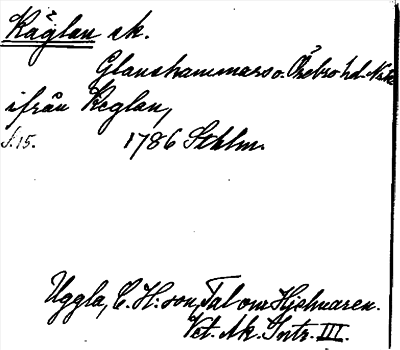 Käglan sk.
Glanshammars o. Örebro hd. Nke
ifrån Keglan,
s. 15. 1786 Sthlm.
Uggla, C. H:son, Tal om Hjelmaren.
Vet. Ak. Intr. III.